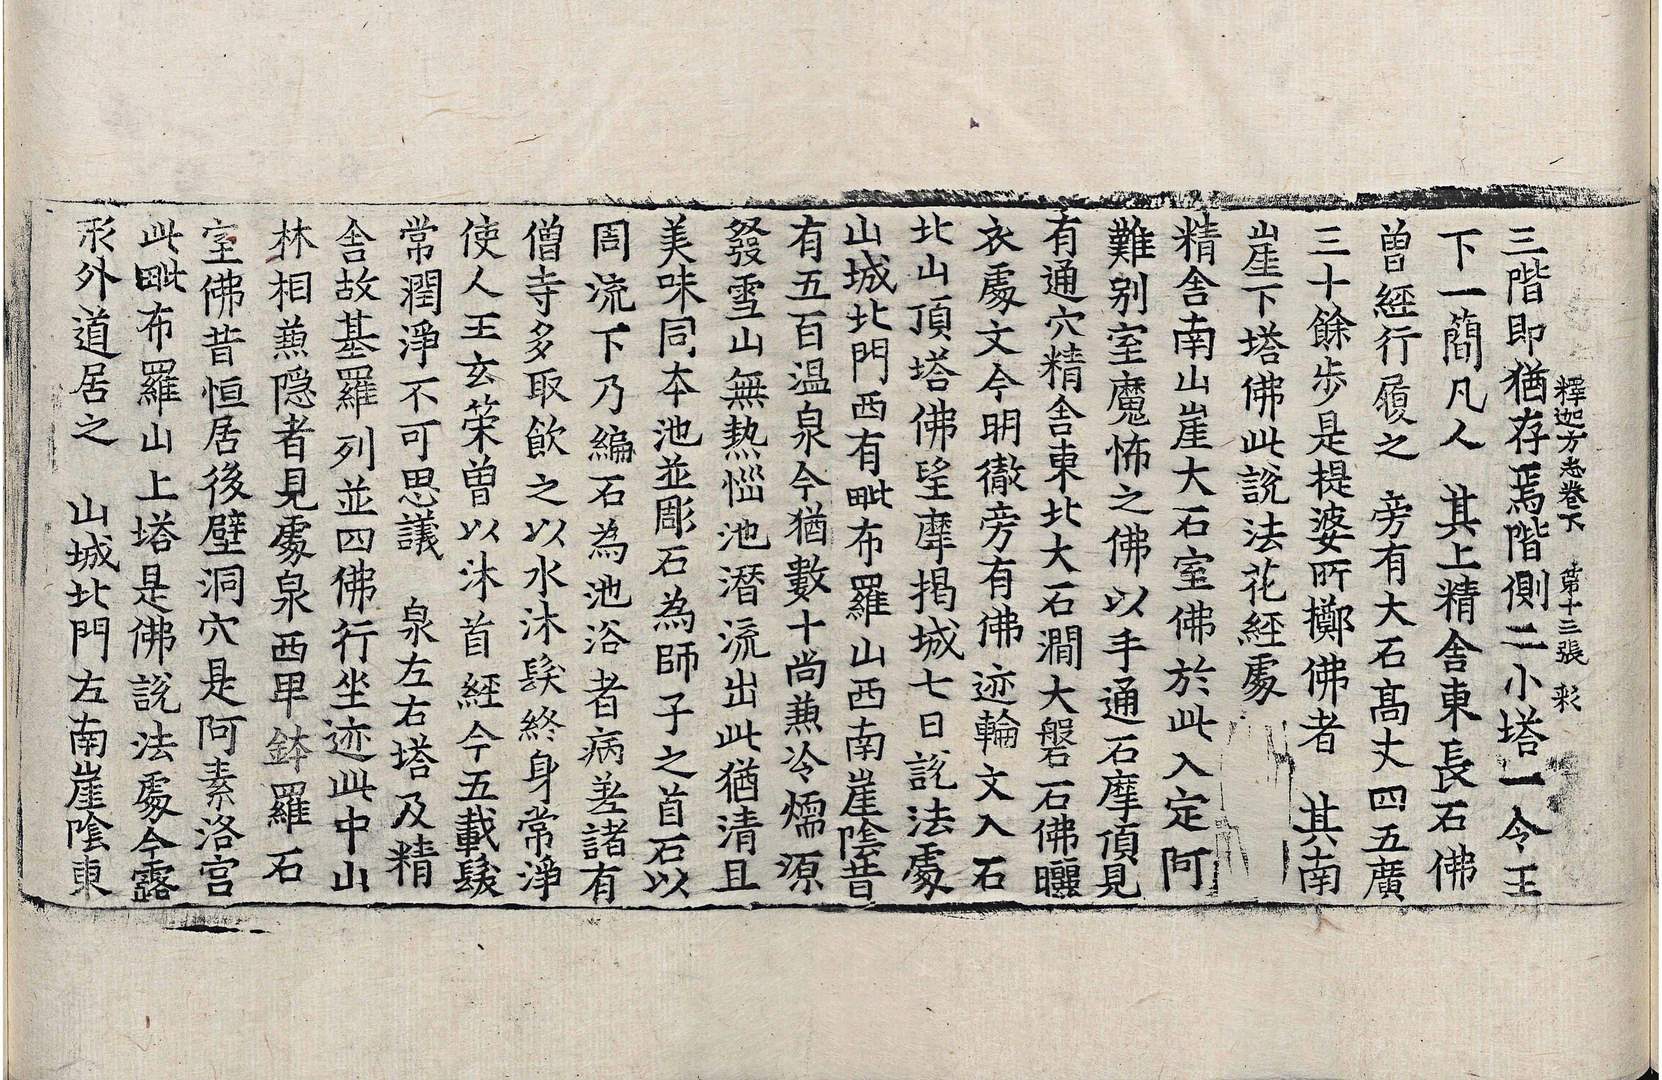 釋迦方志卷下 第十三張 彩
三階即猶存焉階側二小塔一令王
下一簡凡人 其上精舍東長石佛
曽經行履之 旁有大石高丈四五廣
三十餘步是提婆所擲佛者 其南
崖下塔佛此說法花經處
精舍南山崖大石室佛於此入定阿
難别室魔怖之佛以手通石摩頂見
有通穴精舍東北大石澗大磐石佛曬
衣處文今明徹旁有佛迹輪文入石
北山頂塔佛望摩揭城七日說法處
山城北門西有毗布羅山西南崖陰昔
有五百温泉今猶數十尚蕉冷煗源
發雪山無热惱池潜流出此猶清且
美味同本池並彫石為師子之首石以
周流下乃編石為池浴者病差諸有
僧寺多取飲之以水沐髮終身常淨
使人王玄荣曽以沐首經今五載髮
常潤淨不可思議 泉左右塔及精
舍故基羅列並四佛行坐迹此中山
林相蕉隠者見處泉西畢鉢羅石
室佛昔恒居後壁洞穴是阿素洛宫
此毗布羅山上塔是佛說法處今露
形外道居之 山城北門左南崖陰東